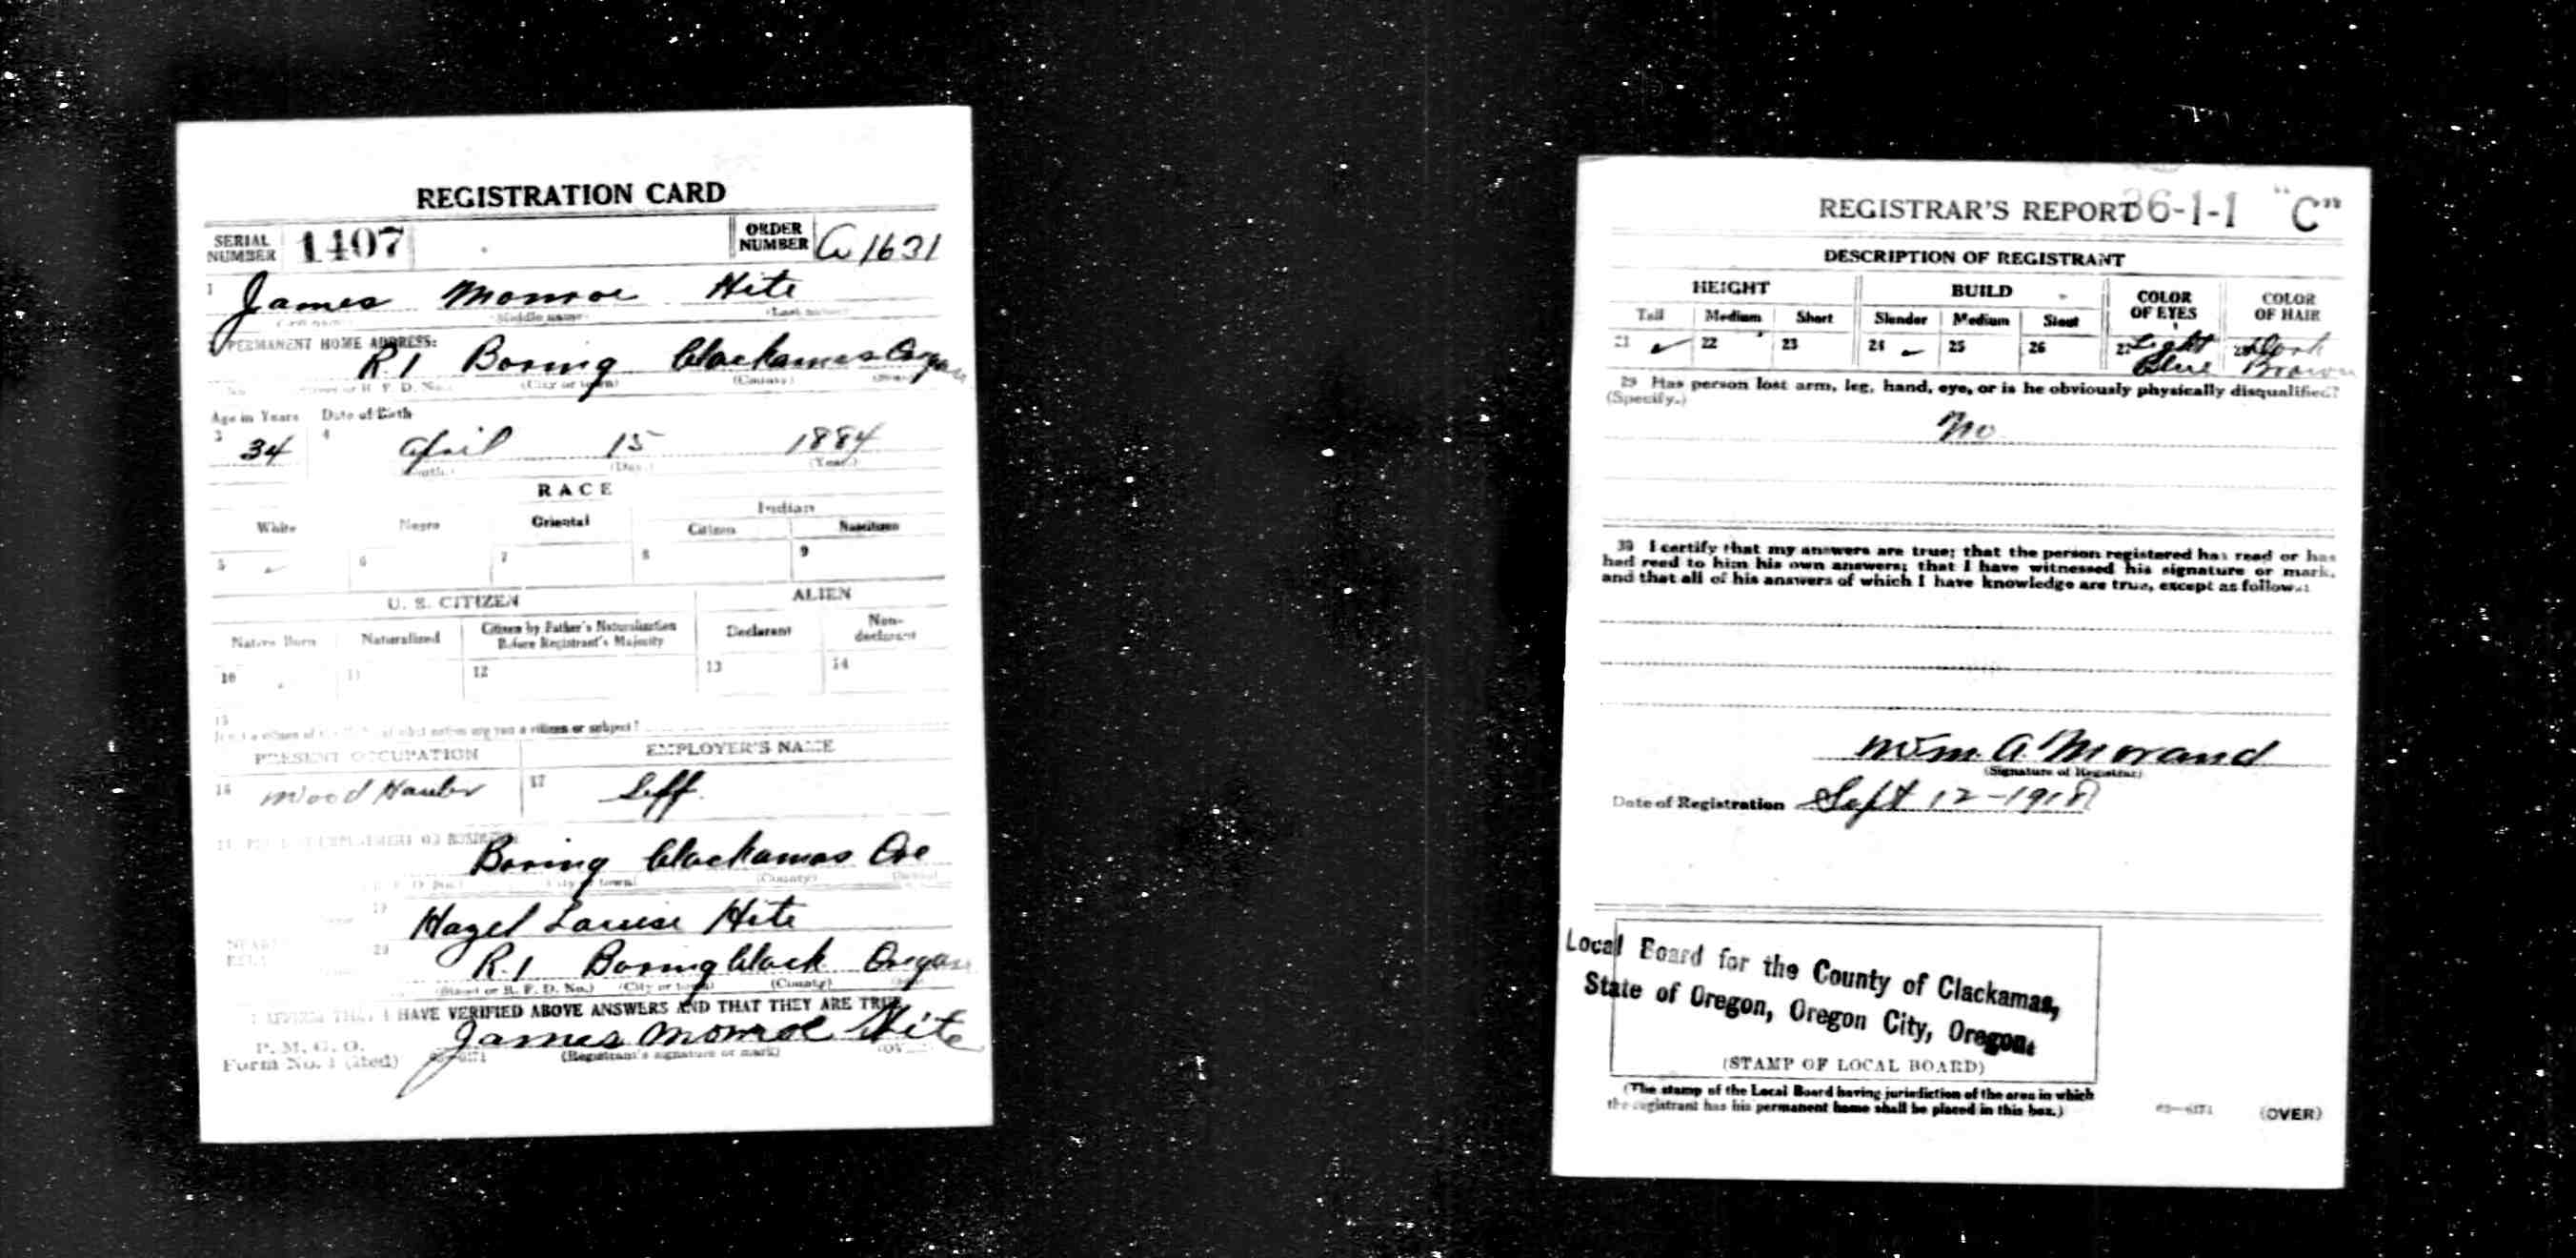 REGISTRATION CARD
SERIAL NUMBER 1407 ORDER NUMBER A 1631
1 James Monroe Hite
(Middle name) (Last name)
PERMANENT HOME ADDRESS:
R 1 Boring Clackamas Oregon
R. F. D. No.) (City or town) (County)
Age in Years Date of Birth
3 34 4 April 15 1884
(Day.) (Year.)
RACE
White Negro Oriental Indian
Citizen Noncitizen
5 ✓ 6 7 8 9
U. S. CITIZEN ALIEN
Native Born Naturalized Citizen by Father's Naturalization Before Registrant's Majority Declarant Non-declarant
10 11 12 13 14
15
of what nation are you a citizen or subject?
PRESENT OCCUPATION EMPLOYER'S NAME
16 Wood Hauler 17 Self.
Boring Clackamas Ore
(County)
19 Hazel Louise Hite
20 R. 1 Boring Clack Oregon
(Street or R. F. D. No.) (City or town) (County)
I AFFIRM THAT I HAVE VERIFIED ABOVE ANSWERS AND THAT THEY ARE TRUE
P. M. G. O.
Form No. 1 (Red) James Monroe Hite
(Registrant's signature or mark)
REGISTRAR'S REPORT 36-1-1 "C"
DESCRIPTION OF REGISTRANT
HEIGHT BUILD COLOR OF EYES COLOR OF HAIR
Tall Medium Short Slender Medium Stout
21 ✓ 22 23 24 ✓ 25 26 27 Light Blue 28 Dark Brown
29 Has person lost arm, leg, hand, eye, or is he obviously physically disqualified?
(Specify.)
No
30 I certify that my answers are true; that the person registered has read or has
had read to him his own answers; that I have witnessed his signature or mark,
and that all of his answers of which I have knowledge are true, except as follows:
Wm. A. Morand
(Signature of Registrar)
Date of Registration Sept 12-1918
Local Board for the County of Clackamas,
State of Oregon, Oregon City, Oregon.
(STAMP OF LOCAL BOARD)
(The stamp of the Local Board having jurisdiction of the area in which
the registrant has his permanent home shall be placed in this box.)
03—6171 (OVER)